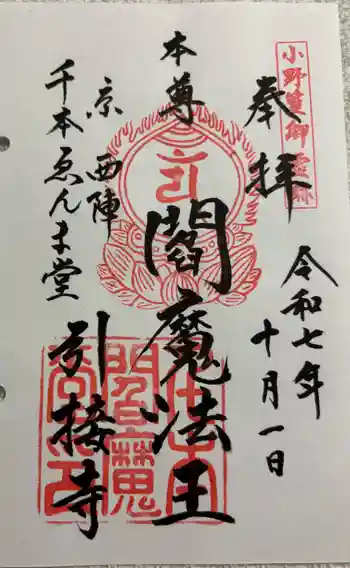 小野篁御霊跡
奉拝
令和七年
十月一日
本尊
閻魔法王
京 西陣
千本ゑんま堂
引接寺